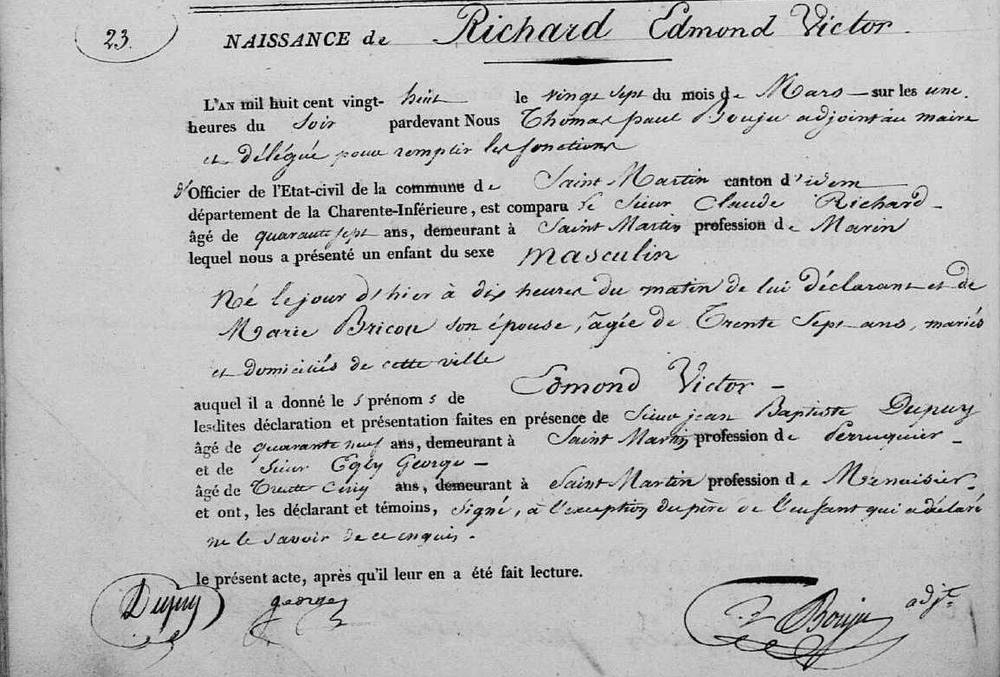 23.
NAISSANCE de Richard Edmond Victor.
L'AN mil huit cent vingt- huit le vingt sept du mois de Mars - sur les une
heures du Soir pardevant Nous Thomas paul Bouju adjoint au maire
et délégué pour remplir les fonctions
d'Officier de l'Etat-civil de la commune de Saint Martin canton d'idem
département de la Charente-Inférieure, est comparu le Sieur Claude Richard -
âgé de quarante sept ans, demeurant à Saint Martin profession de Marin
lequel nous a présenté un enfant du sexe masculin
Né le jour d'hier à dix heures du matin de lui déclarant et de
Marie Bricou son épouse, âgée de Trente Sept ans, mariés
et domiciliés de cette ville
auquel il a donné les prénoms de Edmond Victor -
lesdites déclaration et présentation faites en présence de Sieur jean Baptiste Dupuy
âgé de quarante neuf ans, demeurant à Saint Martin profession de Perruquier -
et de Sieur George -
âgé de Trente Cinq ans, demeurant à Saint Martin profession de Menuisier -
et ont, les déclarant et témoins, signé, à l'exception du père de l'enfant qui a déclaré
ne le savoir de ce enquis.
le présent acte, après qu'il leur en a été fait lecture.
Dupuy george Bouju adjt.